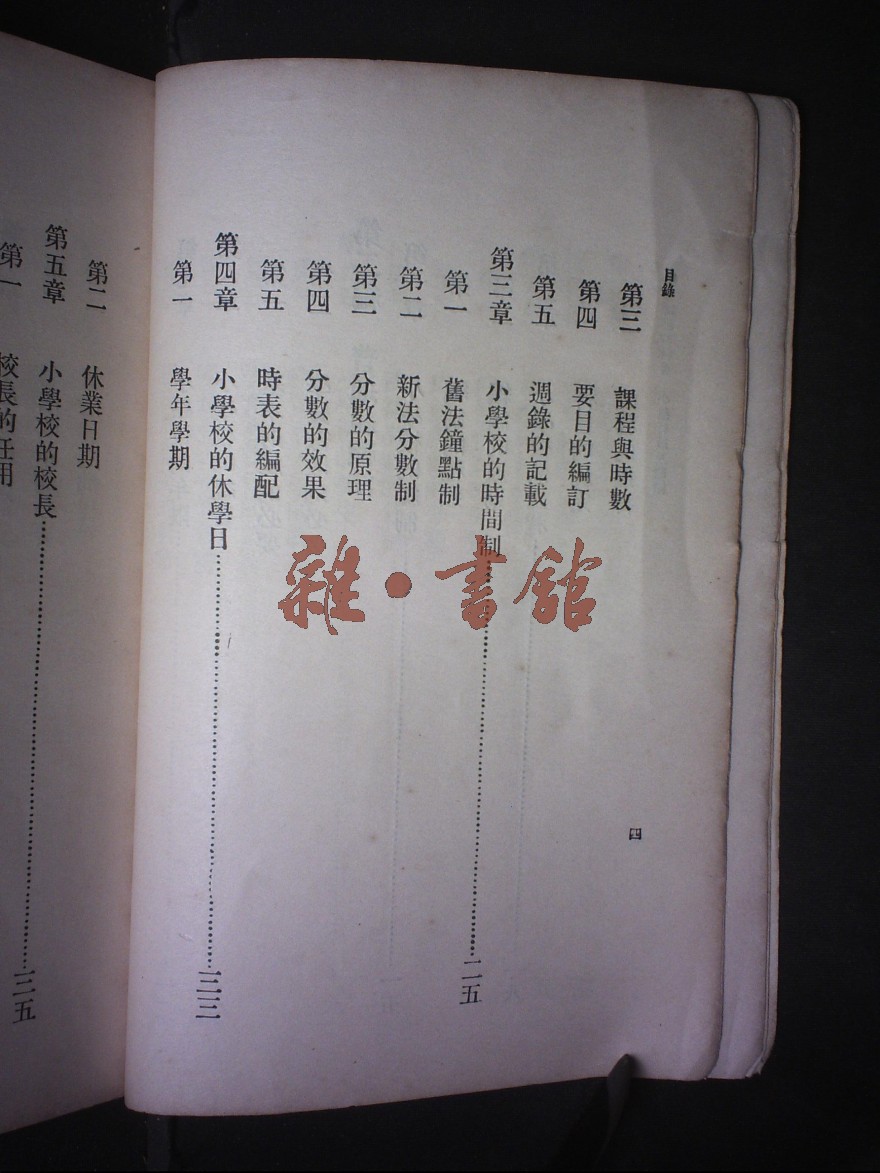 目錄
第三 課程與時數
第四 要目的編訂
第五 週錄的記載
第三章 小學校的時間制……二五
第一 舊法鐘點制
第二 新法分數制
第三 分數的原理
第四 分數的效果
第五 時表的編配
第四章 小學校的休學日……三三
第一 學年學期
四
第二 休業日期
第五章 小學校的校長……三五
第一 校長的任用
雜·書館